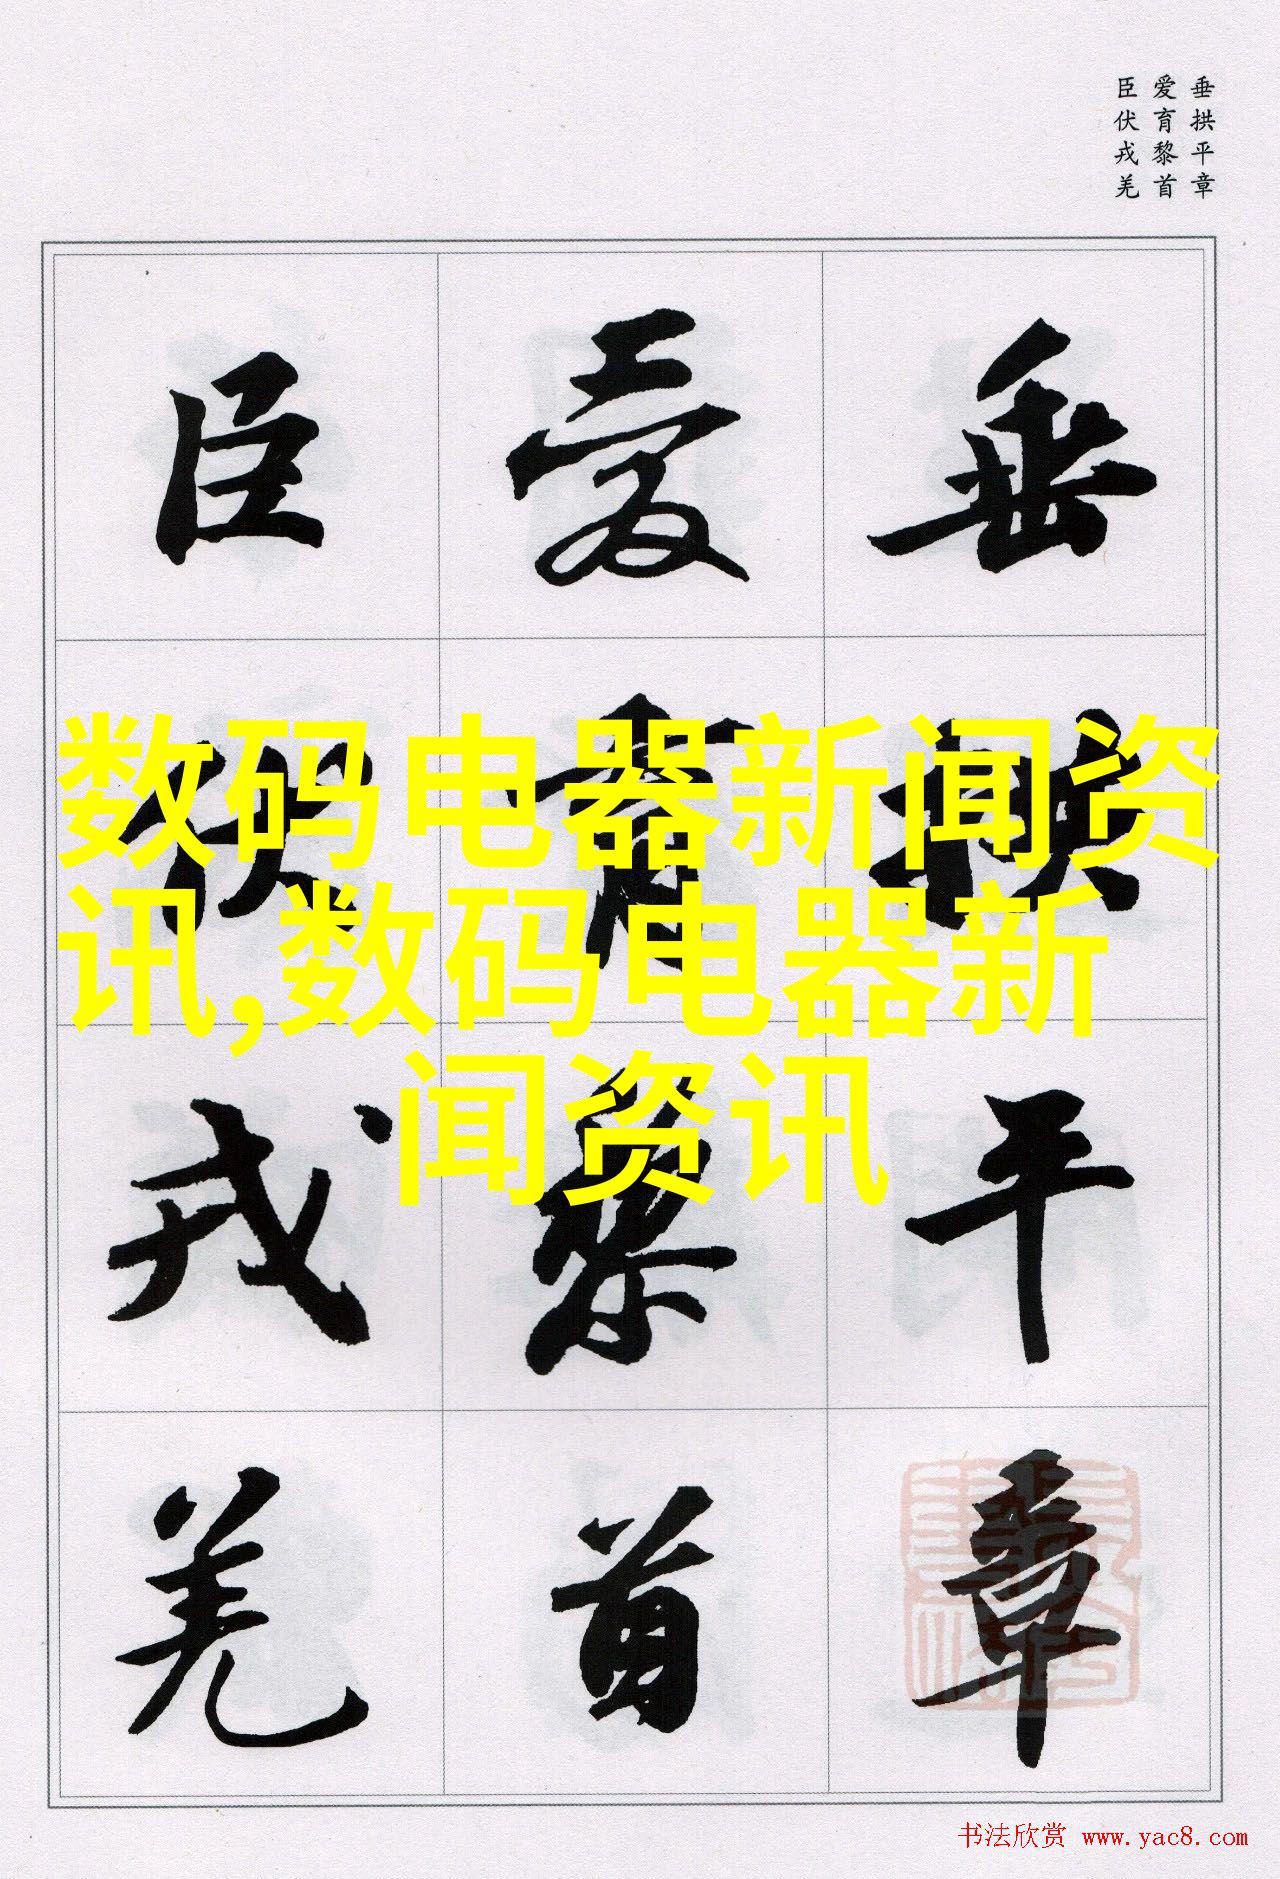 垂拱平章
爱育黎首
臣伏戎羌
垂拱平章
爱育黎首
臣伏戎羌
数码电器新闻资
讯,数码电器新
闻资讯
书法欣赏 www.yac8.com